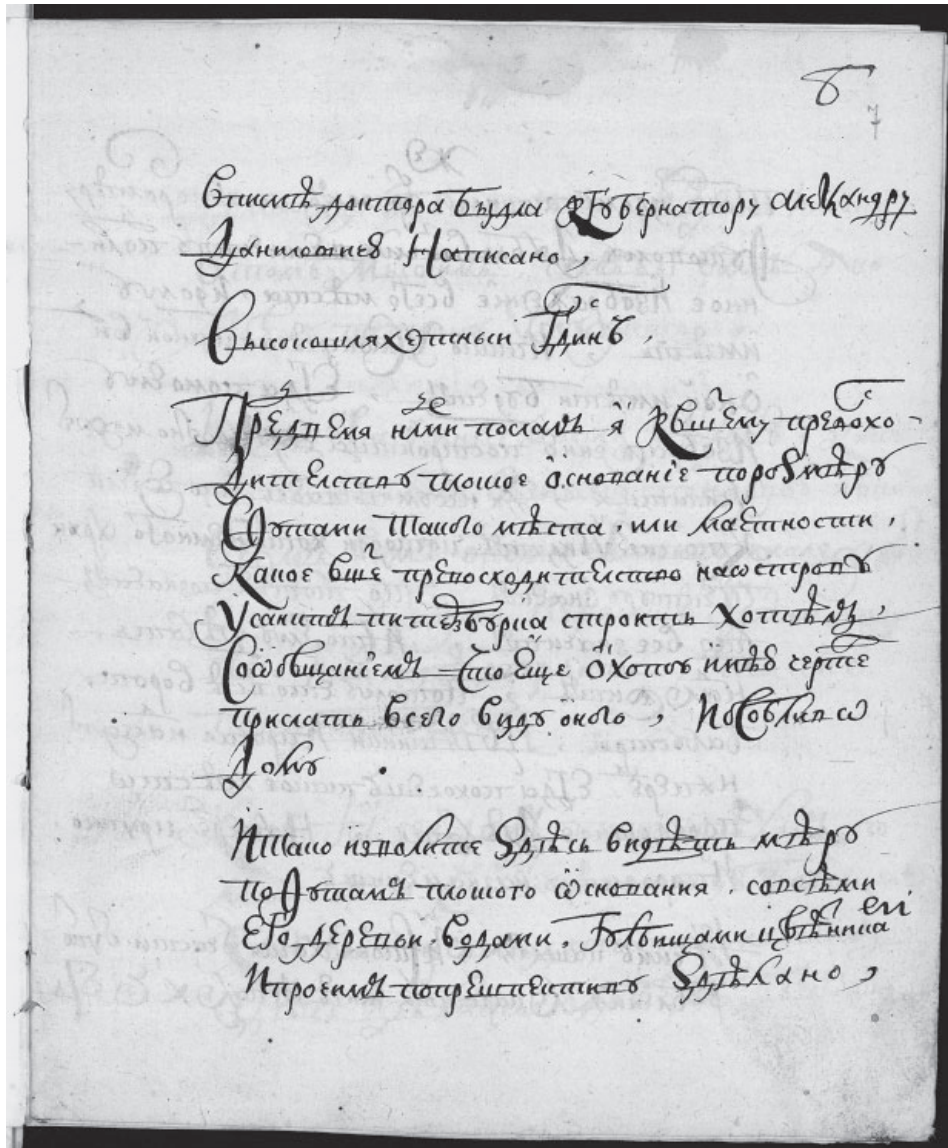 б
7
В писмѣ, доктора быдла к губернатору алеѯандру
Даниловичю Написано,
Высокошляхетныи Гдинъ,
Пред двема нми послалъ я к вшему превосхо-
дителству тошое основание по розмѣру
Футами такого мѣста, или маетности,
Какое вше превосходителство на острову
У санктъ питербурха строить хотѣлъ,
Со обещаниемъ что еще охоту имѣю чертеж
прислать всего виду оного, и особливо
Дому
И тако изволите здѣсь видѣть мѣру
по футамъ тошого основания со всѣми
Его, деревьи, водами, гулбищами и цвѣтника
ми
И протчимъ по препективу здѣлано,